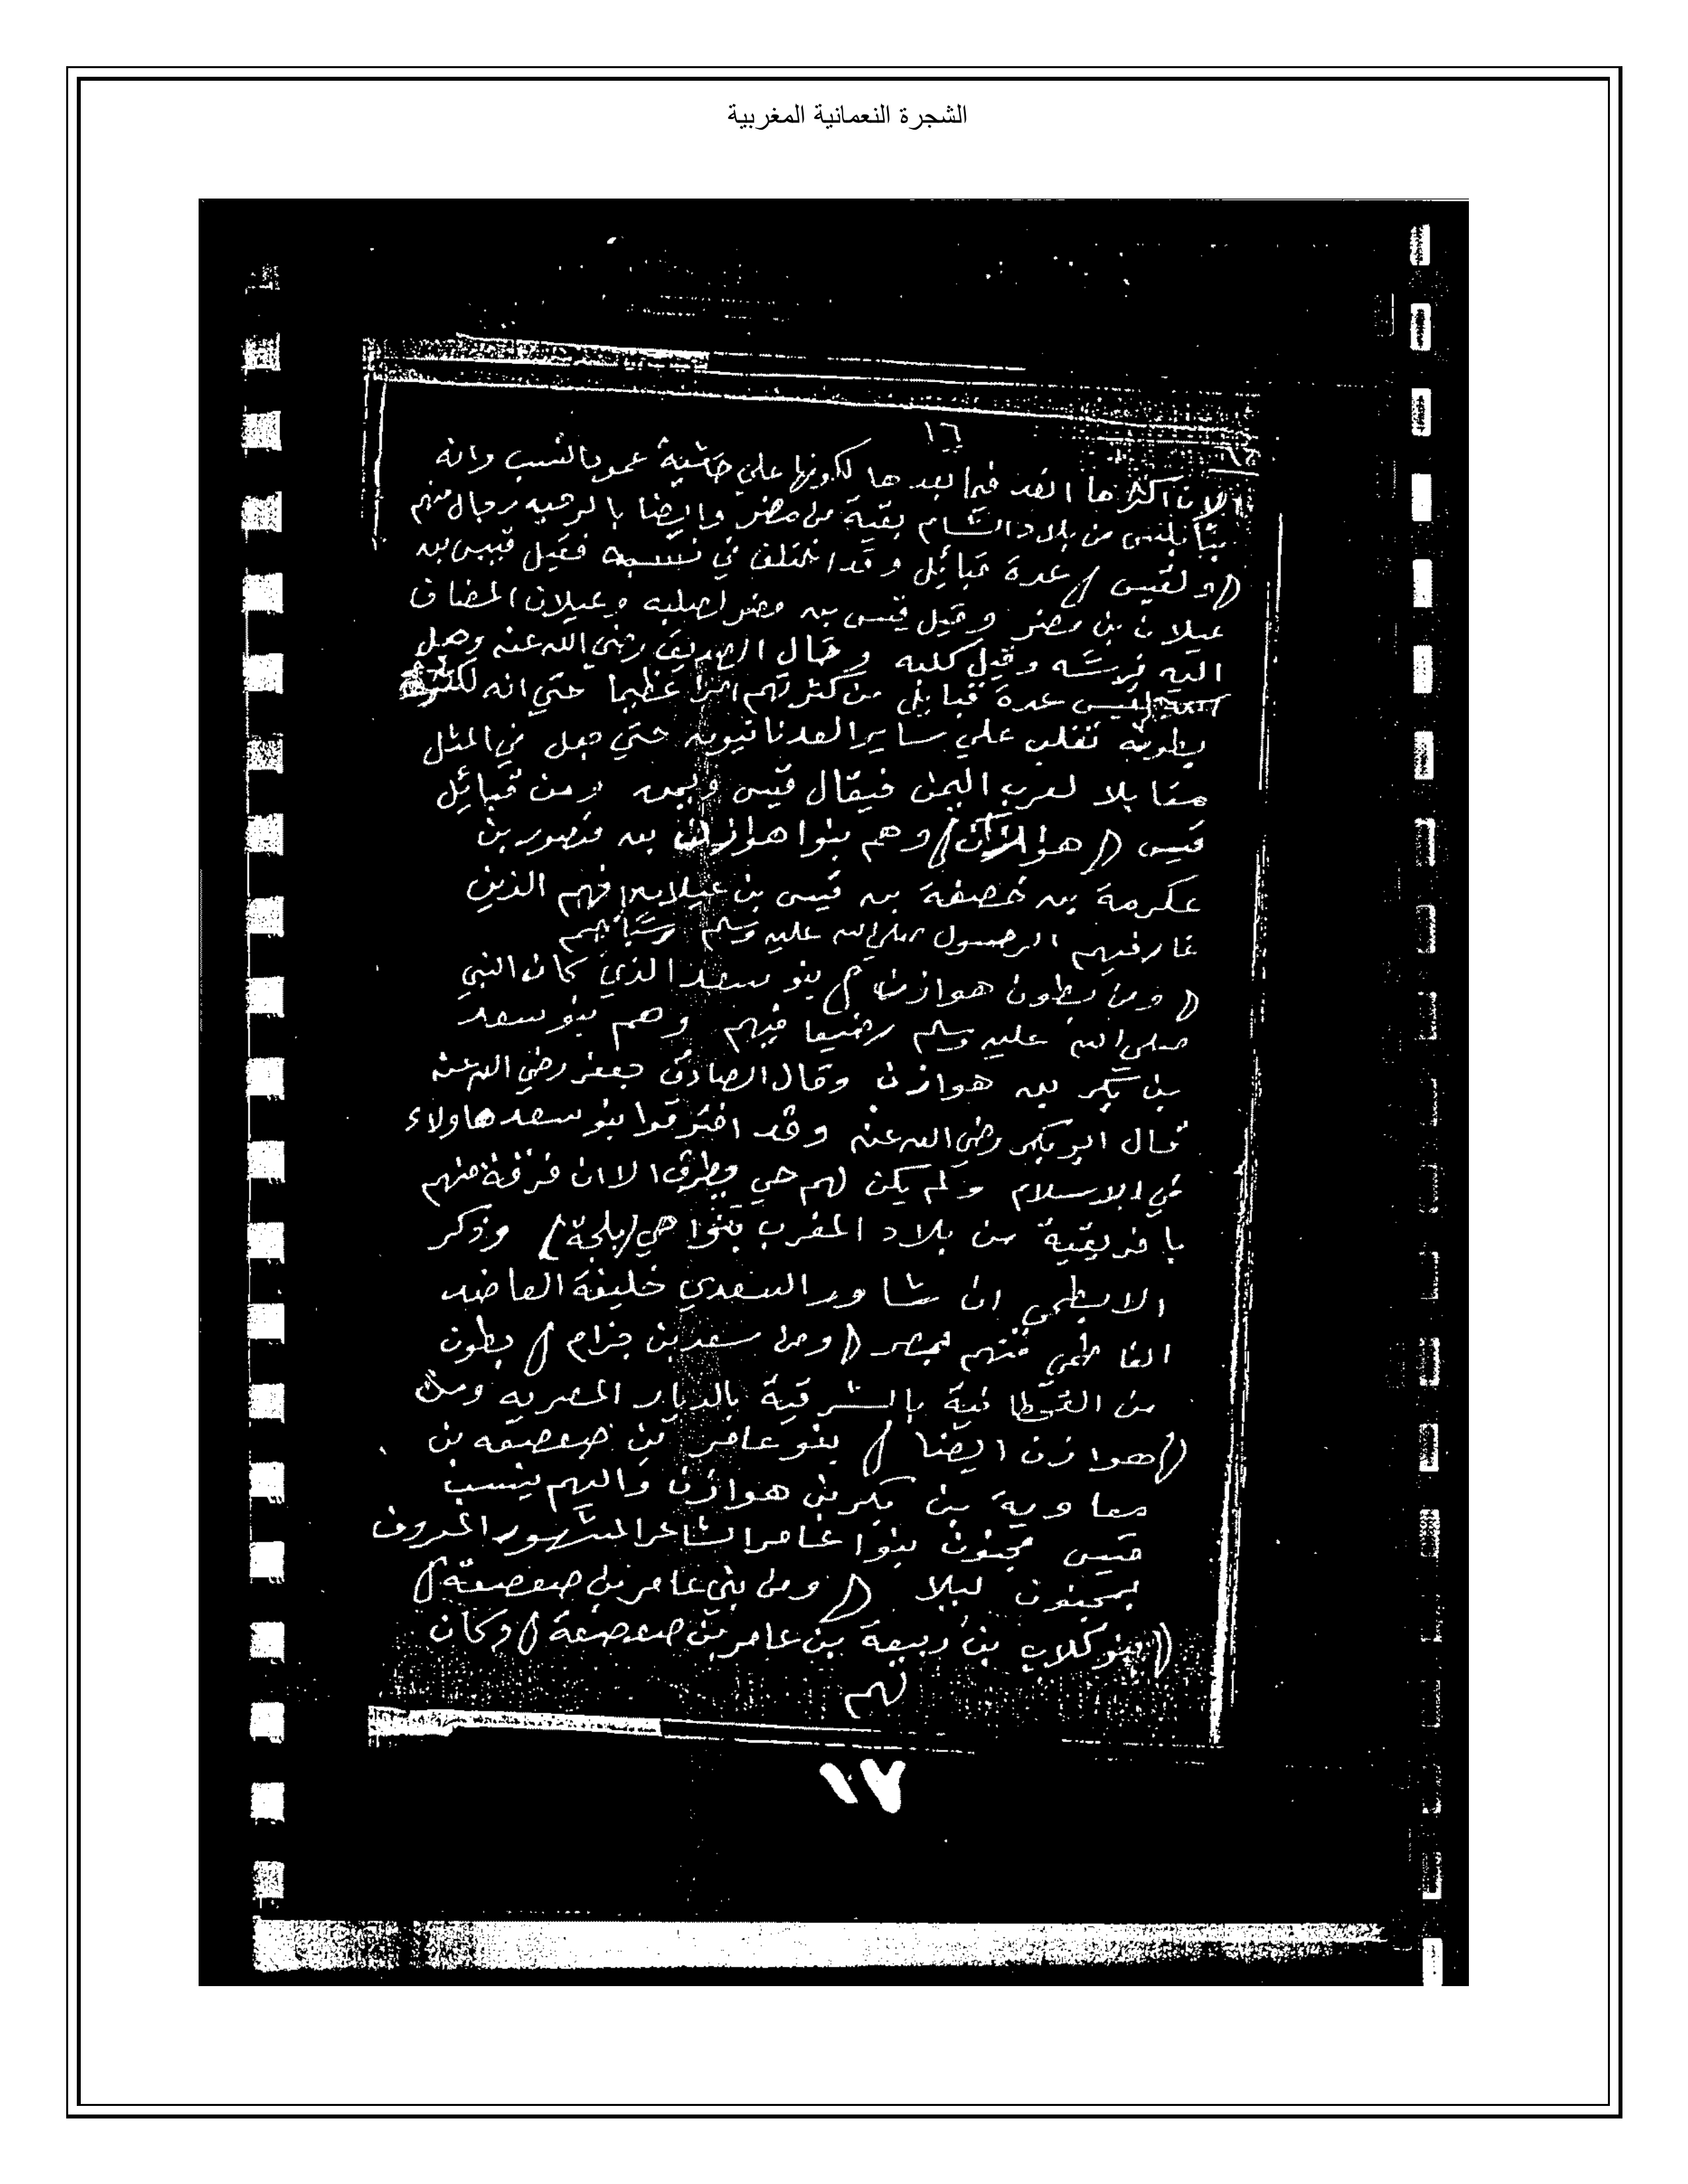 الشجرة النعمانية المغربية
١٦
الان اكثرها فيما بعدها لكونها على حاشية عمود النسب وانه
من بلاد الشام بقية من مضر وايضا رجال منهم
(ولقيس) عدة قبائل وقد اختلف في نسبه فقيل قيس بن
عيلان بن مضر وقيل قيس بن مضر لصلبه وعيلان المضاف
اليه فرسه وقيل كلبه وقال الصديق رضي الله عنه وجعل
لقيس عدة قبايل من كثرتهم امرا عظيما حتي انه لكثرة
بطونه تغلب علي ساير العدنانيون حتي جعل في المثل
مقابلا لعرب اليمن فيقال قيس ويمن ومن قبائل
قيس (هوازن) وهم بنوا هوازن بن منصور بن
عكرمة بن خصفة بن قيس بن عيلان فهم الذين
غار فيهم الرسول صلى الله عليه وسلم
(ومن بطون هوازن) بنو سعد الذي كان النبي
صلى الله عليه وسلم رضيعا فيهم وهم بنو سعد
بن بكر بن هوازن وقال الصادق جعفر رضي الله عنه
قال ابو بكر رضي الله عنه وقد افترقوا بنو سعد هاولاء
في الاسلام ولم يكن لهم حي يطرق الا ان فرقة منهم
بافريقية من بلاد المغرب بنواحي (بلجة) وذكر
ان شاور السعدي خليفة العاضد
الفاطمي منهم بمصر (ومن سعد بن جزام) بطون
من القحطانية بالشرقية بالديار المصريه ومن
(هوازن ايضا) بنو عامر بن صعصعه بن
معاوية بن بكر بن هوازن واليهم ينسب
قيس مجنون بنوا عامر الشاعر المشهور المعروف
بمجنون ليلا (ومن بني عامر بن صعصعة)
(بنو كلاب بن ربيعة بن عامر بن صعصعة) وكان
لهم
١٧